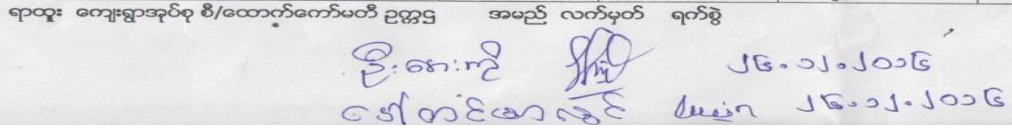 ရာထူး ကျေးရွာအုပ်စု စီ/ထောက်ကော်မတီ ဥက္ကဌ အမည် လက်မှတ် ရက်စွဲ
ဦးအေးကို ၂၆.၁၂.၂၀၁၆
ဒေါ်တင်ထားလွင် ၂၆.၁၂.၂၀၁၆